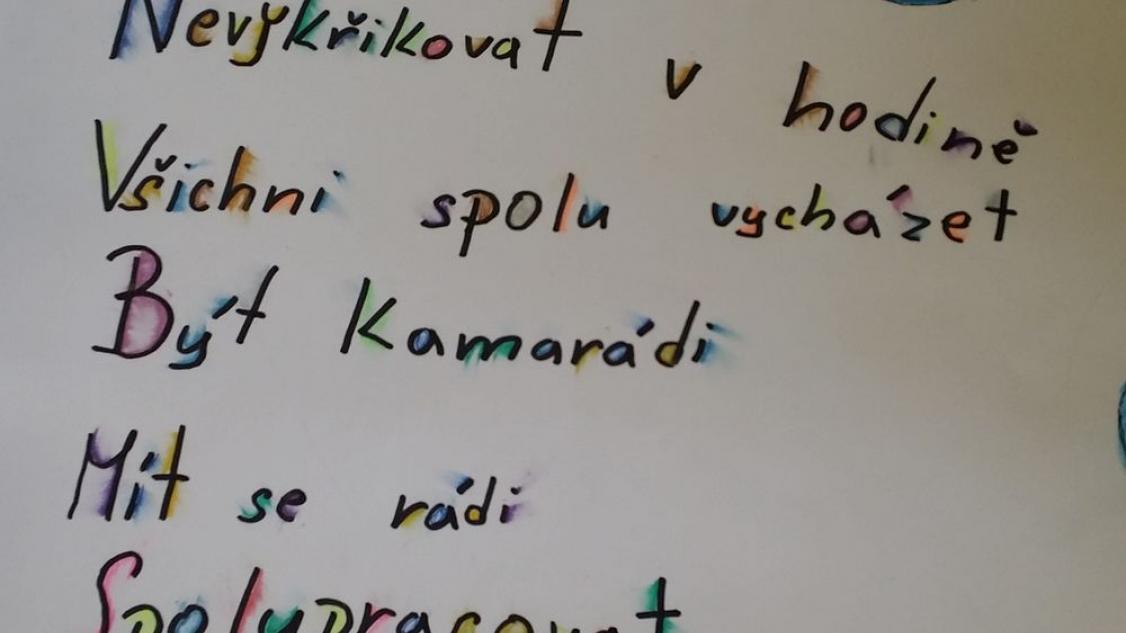 Nevykřikovat v hodině
Všichni spolu vycházet
Být Kamarádi
Mít se rádi
Spolupracovat